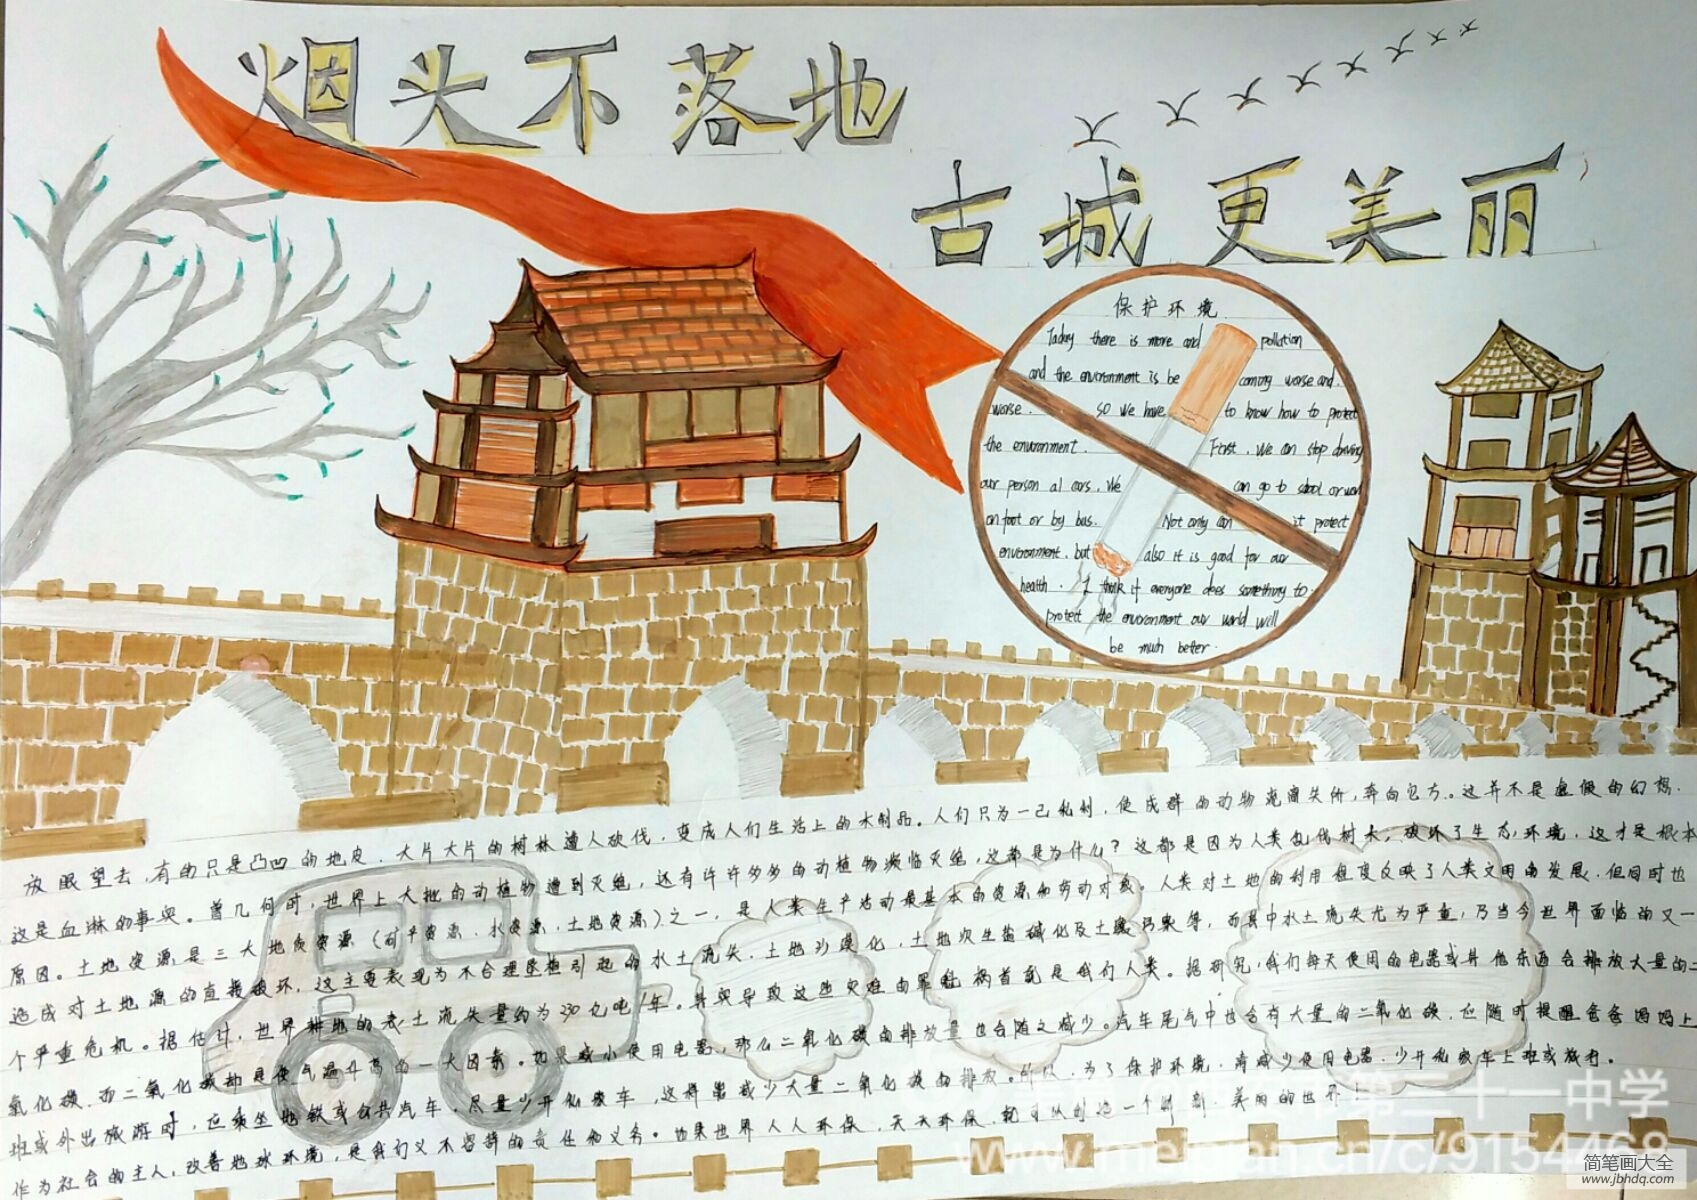 烟头不落地
古城更美丽
保护环境
Today there is more and pollution
and the environment is be coming worse and.
worse. so we have to know how to protect
the environment. First, we can stop driving
our person al cars. We can go to school or work
on foot or by bus. Not only can it protect
environment, but also it is good for our
health. I think if everyone does something to.
protect the environment our world will
be much better.
放眼望去,有的只是凸凹的地皮,大片大片的树林遭人砍伐,变成人们生活上的木制品。人们只为一己私利,使成群的动物流离失所,奔向它方。这并不是虚假的幻想.
这是血淋的事实。曾几何时,世界上大批的动植物遭到灭绝,还有许许多多的动植物濒临灭绝,这都是为什么?这都是因为人类乱伐树木,破坏了生态环境,这才是根本
原因。土地资源是三大地质资源(矿产资源、水资源、土地资源)之一,是人类生产活动最基本的资源和劳动对象。人类对土地的利用程度反映了人类文明的发展,但同时也
造成对土地源的直接破坏,这主要表现为不合理垦植引起的水土流失,土地沙漠化,土地次生盐碱化及土壤污染等,而其中水土流失尤为严重,乃当今世界面临的又一
个严重危机。据估计,世界耕地的表土流失量约为230亿吨/年。其实导致这些灾难的罪魁祸首就是我们人类。据研究,我们每天使用的电器或其他东西会排放大量的二
氧化碳,而二氧化碳却是使气温升高的一大因素。如果减小使用电器,那么二氧化碳的排放量也会随之减少。汽车尾气中也含有大量的二氧化碳,应随时提醒爸爸妈妈上
班或外出旅游时,应乘坐地铁或公共汽车,尽量少开私家车,这样 减少大量二氧化碳的排放。所以,为了保护环境,请减少使用电器,少开私家车上班或旅行。
作为社会的主人,改善地球环境,是我们义不容辞的责任和义务。如果世界人人环保,天天环保,就可以创造一个崭新、美丽的世界!
第三十一中学
www.meipian.cn/c/9154468
简笔画大全
www.jbhdq.com